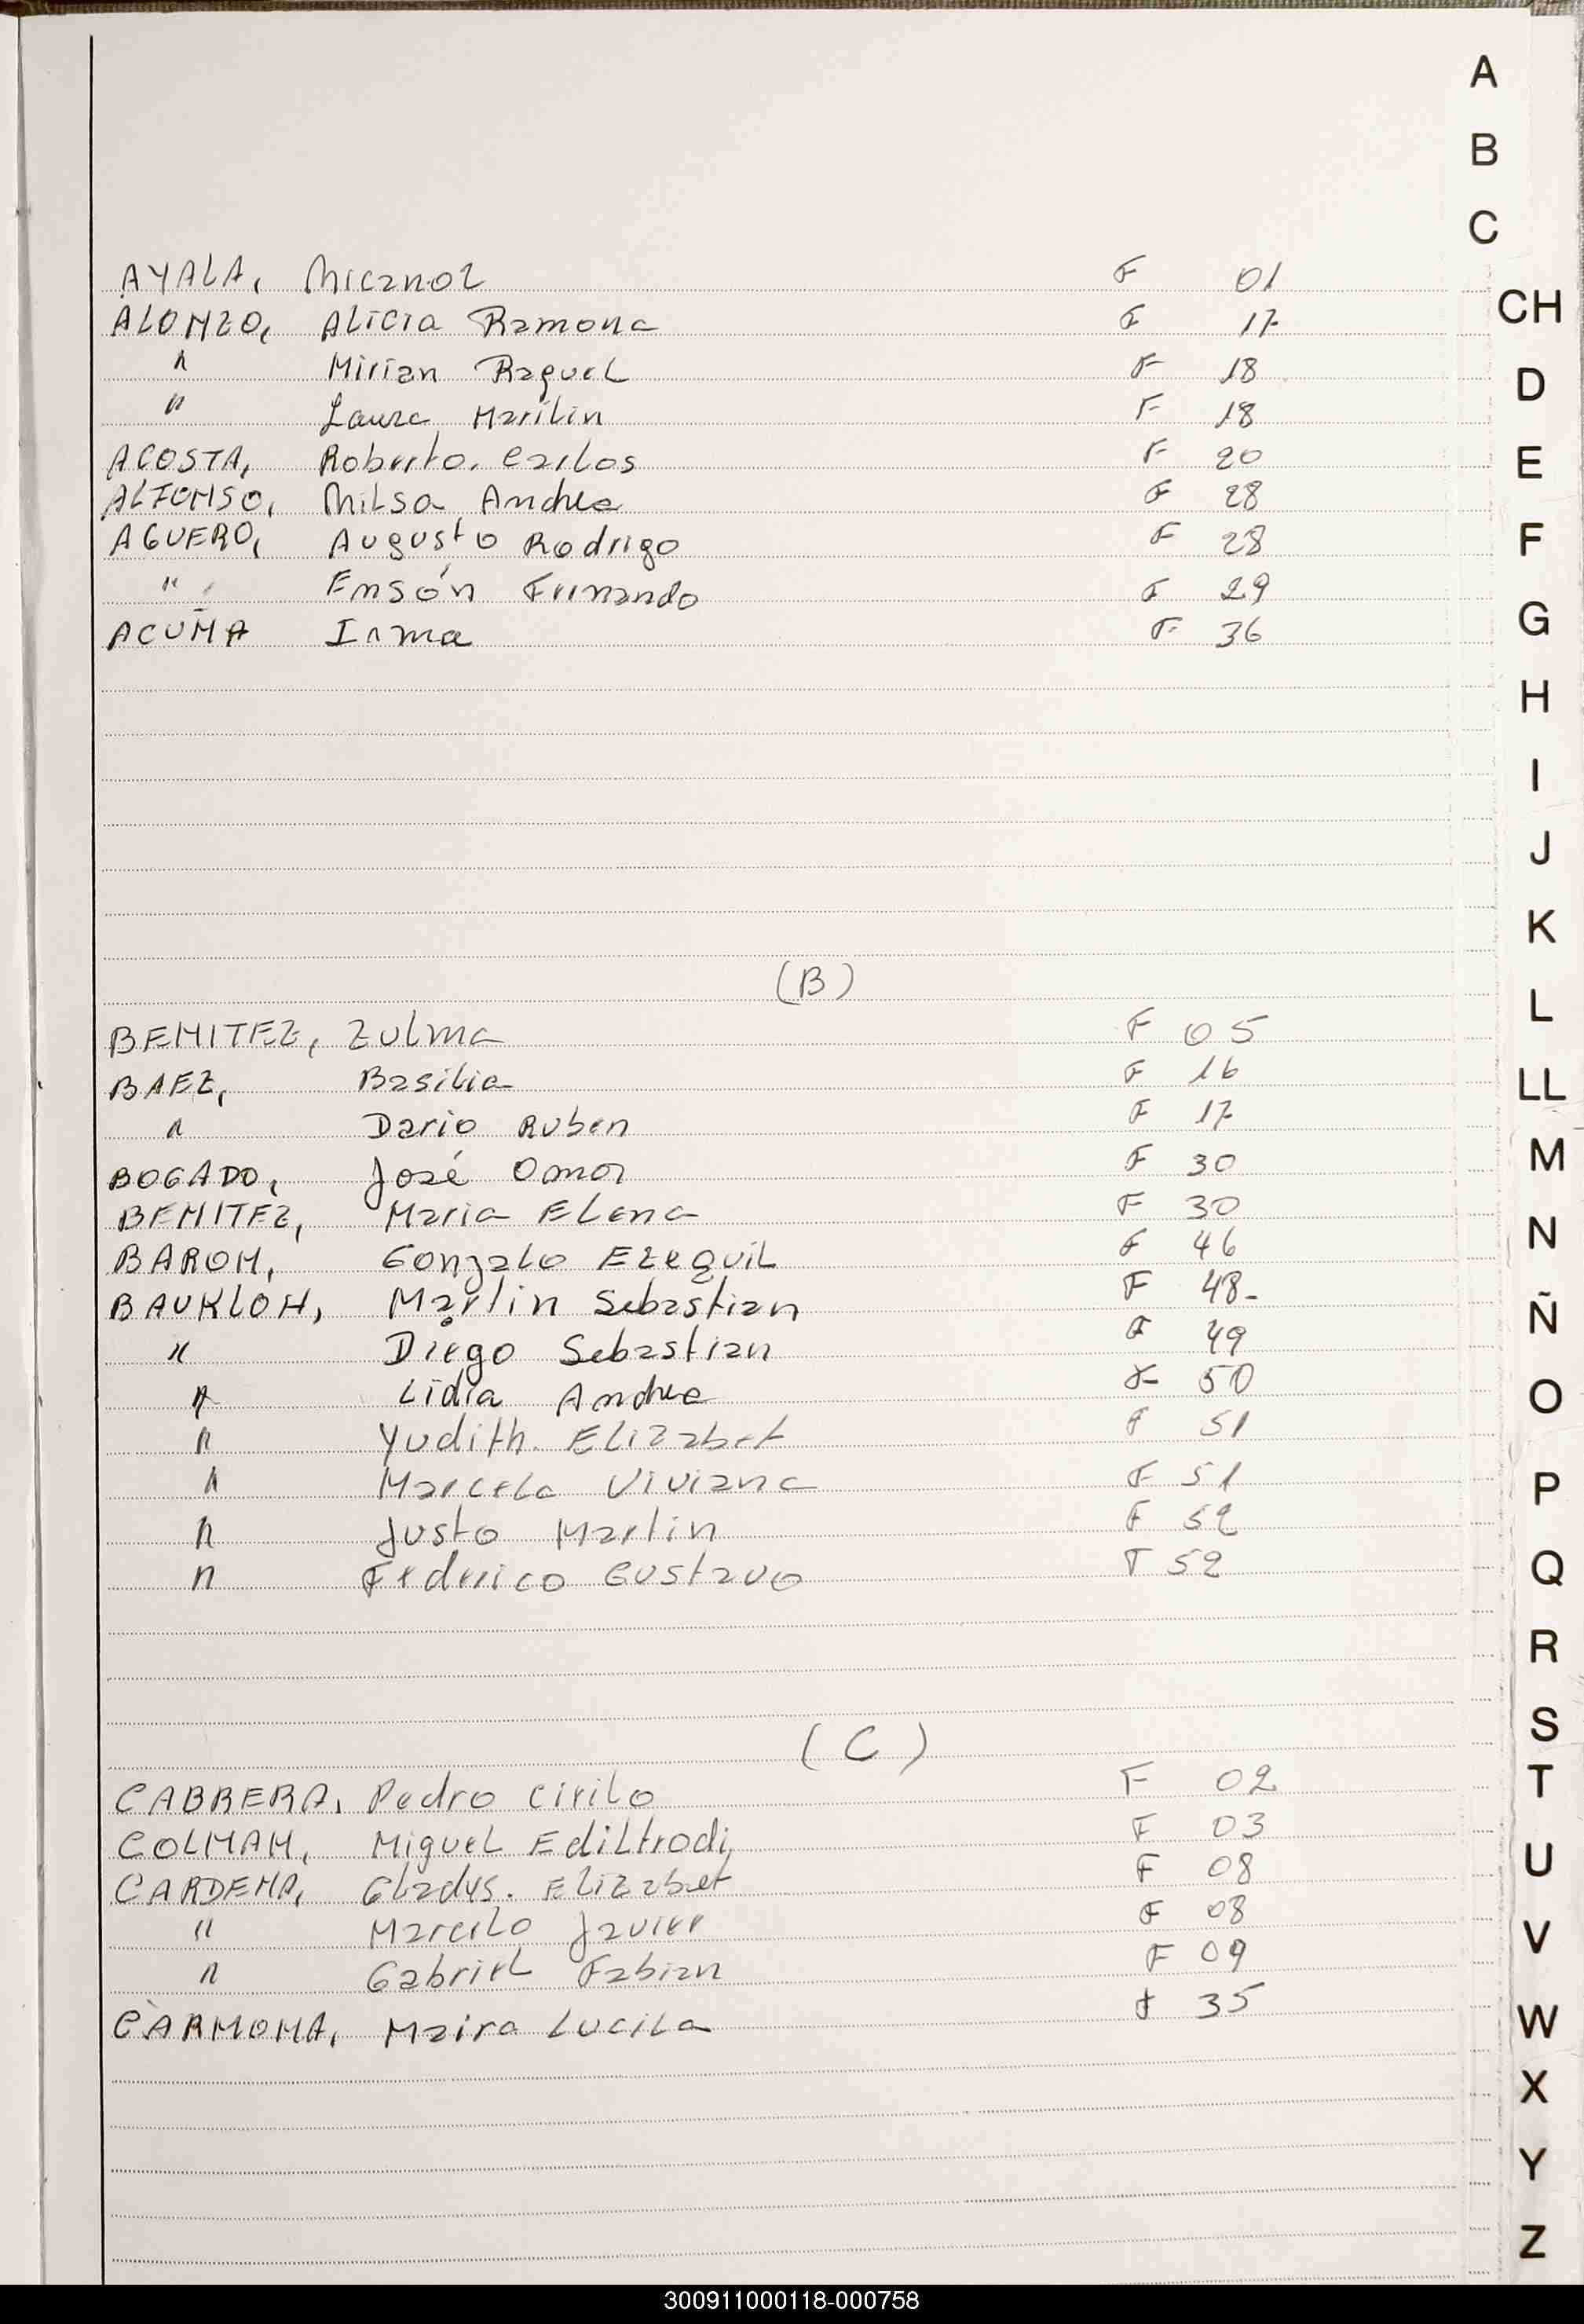 AYALA, Micanor F 01
ALONZO, Alicia Ramona F 17
" Mirian Raquel F 18
" Laura Marilin F 18
ACOSTA, Roberto. Carlos F 20
ALFONSO, Nilsa Andrea F 28
AGUERO, Augusto Rodrigo F 28
" Ensón Fernando F 29
ACUÑA Irma F 36
(B)
BENITEZ, Zulma F 05
BAEZ, Basilia F 16
" Dario Ruben F 17
BOGADO, José Omar F 30
BENITEZ, Maria Elena F 30
BARON, Gonzalo Ezequiel F 46
BAUKLOH, Martin Sebastian F 48-
" Diego Sebastian F 49
" Lidia Andrea F 50
" Yudith. Elizabet F 51
" Marcela Viviana F 51
" Justo Martin F 52
" Federico Gustavo F 52
(C)
CABRERA, Pedro Cirilo F 02
COLMAN, Miguel Ediltrodi F 03
CARDENA, Gladys. Elizabet F 08
" Marcelo Javier F 08
" Gabriel Fabian F 09
CARMONA, Maira Lucila F 35
A
B
C
CH
D
E
F
G
H
I
J
K
L
LL
M
N
Ñ
O
P
Q
R
S
T
U
V
W
X
Y
Z
300911000118-000758